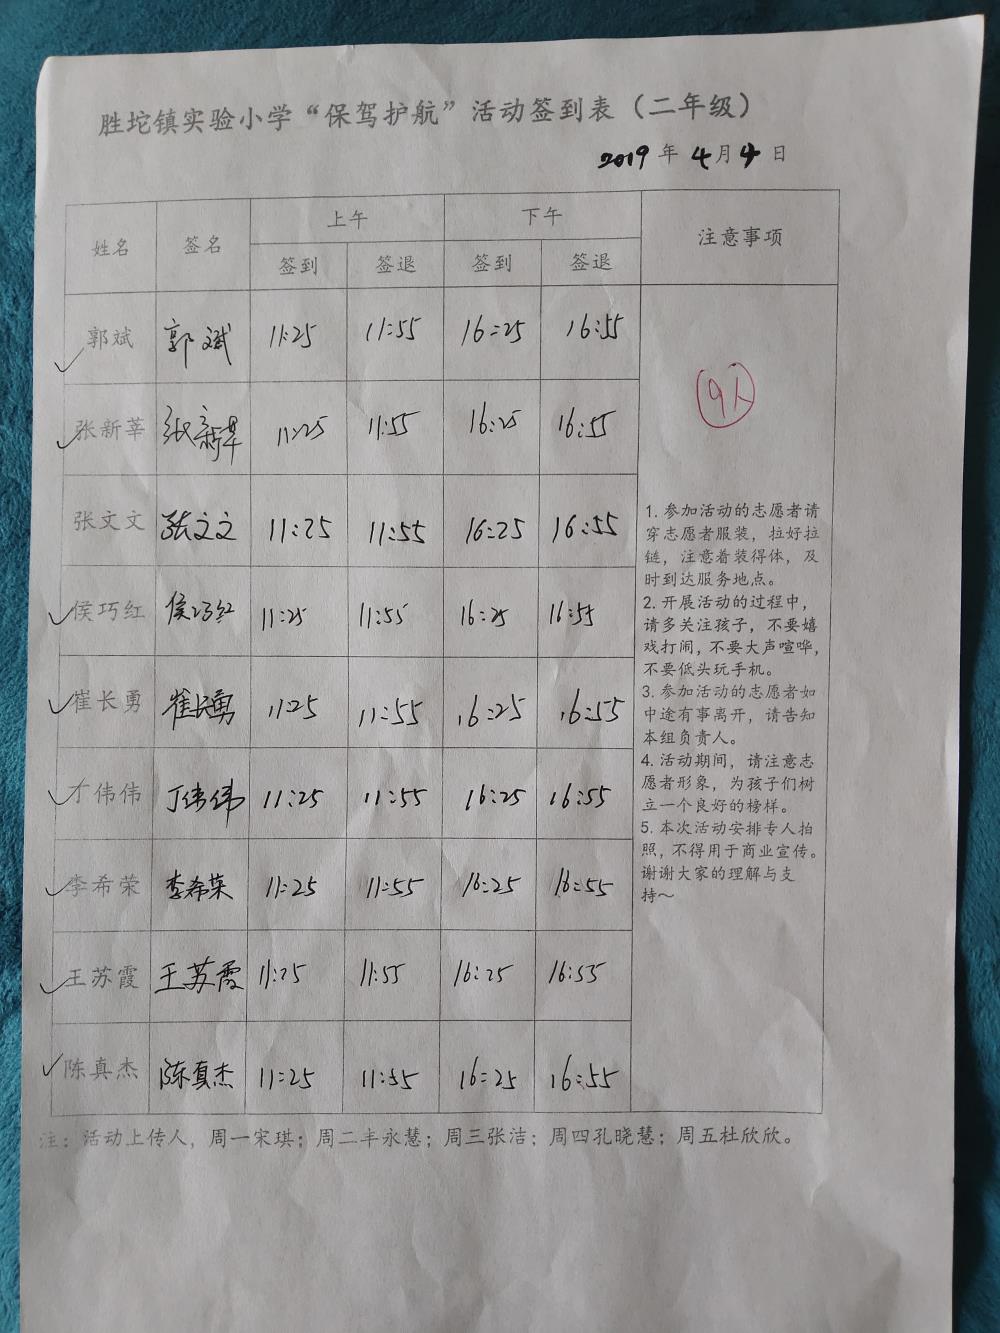 胜坨镇实验小学“保驾护航”活动签到表（二年级）
2019年 4月 4日
姓名 签名 上午 下午 注意事项
签到 签退 签到 签退
郭斌 郭斌 11:25 11:55 16:25 16:55
9人
张新莘 张新莘 11:25 11:55 16:25 16:55
张文文 张文文 11:25 11:55 16:25 16:55
侯巧红 侯巧红 11:25 11:55 16:25 16:55
崔长勇 崔长勇 11:25 11:55 16:25 16:55
才伟伟 丁伟伟 11:25 11:55 16:25 16:55
李希荣 李希荣 11:25 11:55 16:25 16:55
王苏霞 王苏霞 11:25 11:55 16:25 16:55
陈真杰 陈真杰 11:25 11:55 16:25 16:55
1. 参加活动的志愿者请
穿志愿者服装，拉好拉
链，注意着装得体，及
时到达服务地点。
2. 开展活动的过程中，
请多关注孩子，不要嬉
戏打闹，不要大声喧哗，
不要低头玩手机。
3. 参加活动的志愿者如
中途有事离开，请告知
本组负责人。
4. 活动期间，请注意志
愿者形象，为孩子们树
立一个良好的榜样。
5. 本次活动安排专人拍
照，不得用于商业宣传。
谢谢大家的理解与支
持～
注：活动上传人，周一宋琪；周二丰永慧；周三张洁；周四孔晓慧；周五杜欣欣。